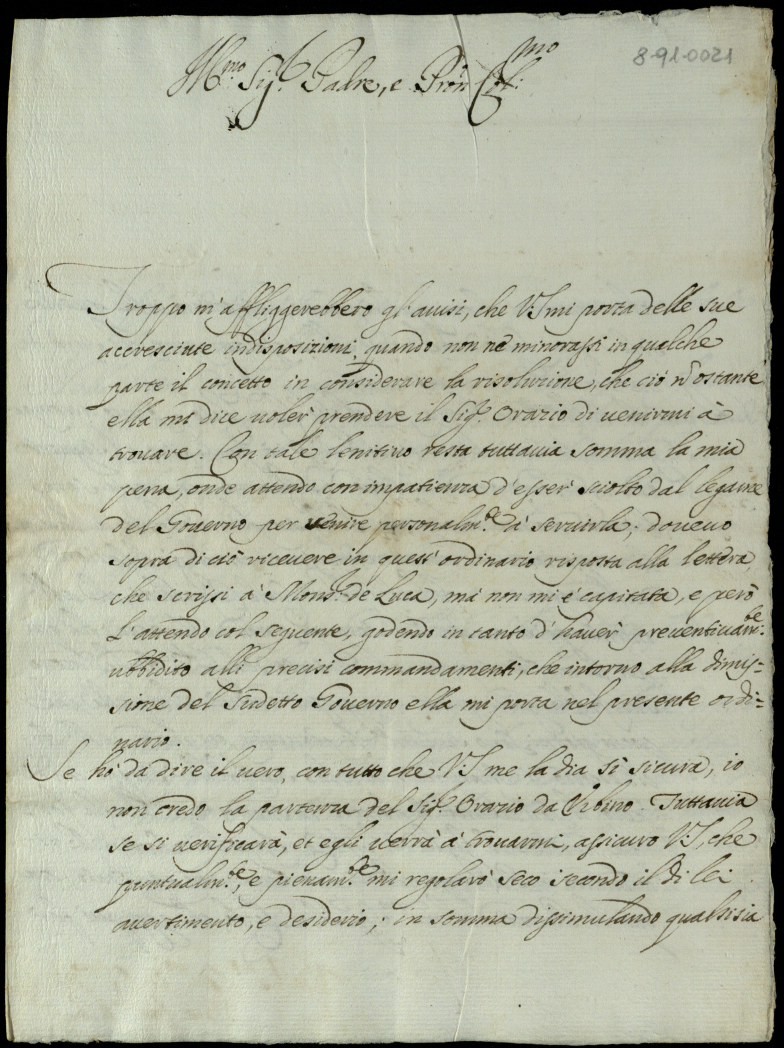 8-91-0021
Ill.mo Sig.r Padre, e Pron Col.mo
Troppo m'affliggerebbero gl'auisi, che V.S. mi porta delle sue
accresciute indisposizioni, quando non ne minorassi in qualche
parte il concetto in considerare la risoluzione, che ciò n̄ ostante
ella mi dice uoler prendere il Sig.r Orazio di uenirmi à
trouare. Con tale lenitiuo resta tuttauia somma la mia
pena, onde attendo con impatienza d'esser sciolto dal legame
del Gouerno per uenire personalm.te à seruirla; doueuo
sopra di ciò riceuere in quest'ordinario risposta alla lettera,
che scrissi à Mons.r de Luca, mà non mi è capitata, e però
L'attendo col seguente, godendo in tanto d'hauer preuentiuam.te
ubbidito alli precisi commandamenti, che intorno alla dimis=
sione del Sudetto Gouerno ella mi porta nel presente ordi=
nario.
Se hò da dire il uero, con tutto che V.S. me la dia sì sicura, io
non credo la partenza del Sig.r Orazio da Vrbino. Tuttauia
se si uerificarà, et egli uerrà à trouarmi, assicuro V.S., che
puntualm.te, e pienam.te mi regolarò seco secondo il di lei
auertimento, e desiderio; in somma dissimulando qualsisia